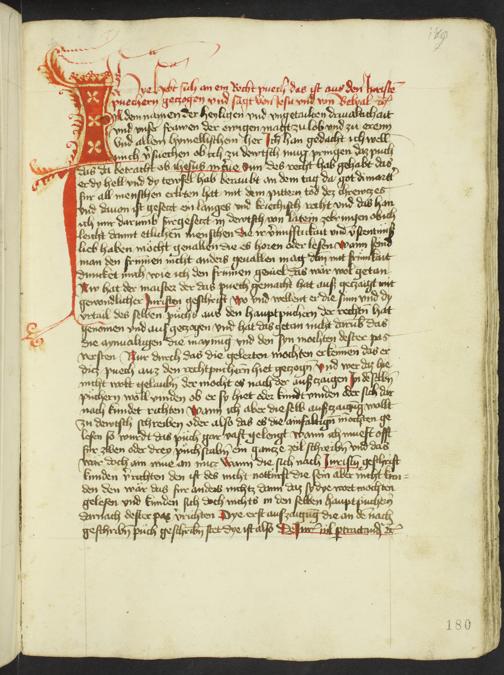 189
Hye hebt sich an ein Recht puech das ist aus den Juristen
puechern getzogen vnd sagt von Jesu vnd von Belyal
In dem namen der heiligen vnd vngetailten drivaltichait
vnd vnser frawen der ewigen magt zu lob vnd zu erenn
vnd allem hymelischen her Ich han gedacht ich well
mich versuechen ob ich zu deutsch mug pringen ditz puech
das da betracht ob ihesus recht hab gehabt das
er dy hell vnd dy teyfel hab beraubt an dem tag da got die marter
für all menschen erliten hat mit dem pittern tod des chreutzes
vnd dauon ist gesetzt ein langes vnd kriechisch recht vnd das han
ich mir darumb fürgesetzt in deutsch von latein ze bringen ob ich
leicht damit etlichen menschen
lieb haben mocht geuallen die es horen oder lesen wann seid
man den frumen nicht anders geuallen mag dan mit frümkait
duncket mich wie ich den frumen geuiel das wär wol getan
Nw hat der maister der das puech gemacht hat auf getzaigt mit
gewondlicher Juristen geschrift wo vnd wellent er die sinn vnd dy
vrtail des selben püchs aus den hauptpuchern der rechten hat
genomen vnd aus getzogen vnd hat das getan nicht darumb das
die aynualtigen die maynung vnd den syn mochten dester pas
versten Nur durch das die gelerten mochten erkennen das er
ditz puech aus den rechtpuchern hiet getzogen vnd wer dez hie
nicht wolt gelauben der mocht es nach der aufzaigen In den selben
püchern woll vinden ob er so hiet oder kindt vinden oder sich dar
nach kündet richten Wann ich aber die selb aufzaigung wollt
zu deutsch schreiben oder also das es die ainfaltigen mochten ge
lesen so wurdt das puch gar vast gelengt Wann ich muest offt
für zben oder drey puchstaben ein gantze zeil schreiben vnd das
wär doch an nutz an mir Wann die sich nach Juristen geschrift
künden verichten den ist des nicht notdurft die sein aber nicht kun
den den wär das für anders nichtz dann das sy dye wort mochten
gelesen vnd kunden sich doch nichts in den selben haupt puchern
darnach dester pas verichten Dye erst aufzaigung die an de nach
geschriben puch geschriben stet dye ist also
180